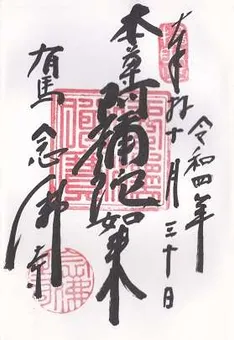 奉拝
令和四年
十月三十日
本尊阿彌陀如来
有馬念佛寺